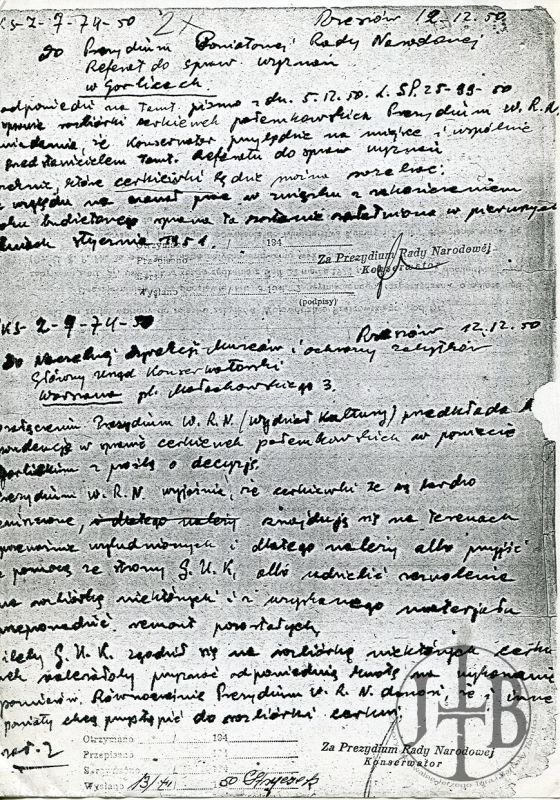 KS-I-7-74-50 2x Rzeszów 12.12.50
do Prezydium Powiatowej Rady Narodowej
Referat do spraw wyznań
w Gorlicach.
odpowiedzi na tamt. pismo z dn. 5.12.50. L. SP. 25-99-50
sprawie rozbiórki cerkiewek połemkowskich Prezydium W.R.N.
że Konserwator przyjedzie na miejsce i wspólnie
przedstawicielem tamt. Referatu do spraw wyznań
które cerkiewki będzie można rozebrać.
względu na nawał prac w związku z zakończeniem
roku budżetowego sprawa ta zostanie załatwiona w pierwszych
dniach stycznia 1951.
Otrzymano / 194
Przepisano
Wysłano
Za Prezydium Rady Narodowej
Konserwator
(podpisy)
KS-I-7-74-50 Rzeszów 12.12.50
do Naczelnej Dyrekcji Muzeów i ochrony zabytków
Główny Urząd Konserwatorski
Warszawa pl. Małachowskiego 3.
załączeniu Prezydium W.R.N. (Wydział Kultury) przedkłada
w sprawie cerkiewek połemkowskich w powiecie
gorlickim z prośbą o decyzję.
Prezydium W.R.N. wyjaśnia, że cerkiewki te są bardzo
zniszczone, i dlatego należy znajdują się na terenach
wyludnionych i dlatego należy albo przyjść
z pomocą ze strony G.U.K, albo udzielić zezwolenia
na rozbiórkę niektórych i z uzyskanego materjału
przeprowadzić remont pozostałych.
G.U.K. zgodził się na rozbiórkę niektórych
należałoby przyznać odpowiednią kwotę na wykonanie
pomiarów. Równocześnie Prezydium W.R.N. donosi, że i inne
powiaty chcą przystąpić do rozbiórki cerkwi.
zał. 2
Otrzymano / 194
Przepisano
Wysłano 13/XII 50
Za Prezydium Rady Narodowej
Konserwator
JTB